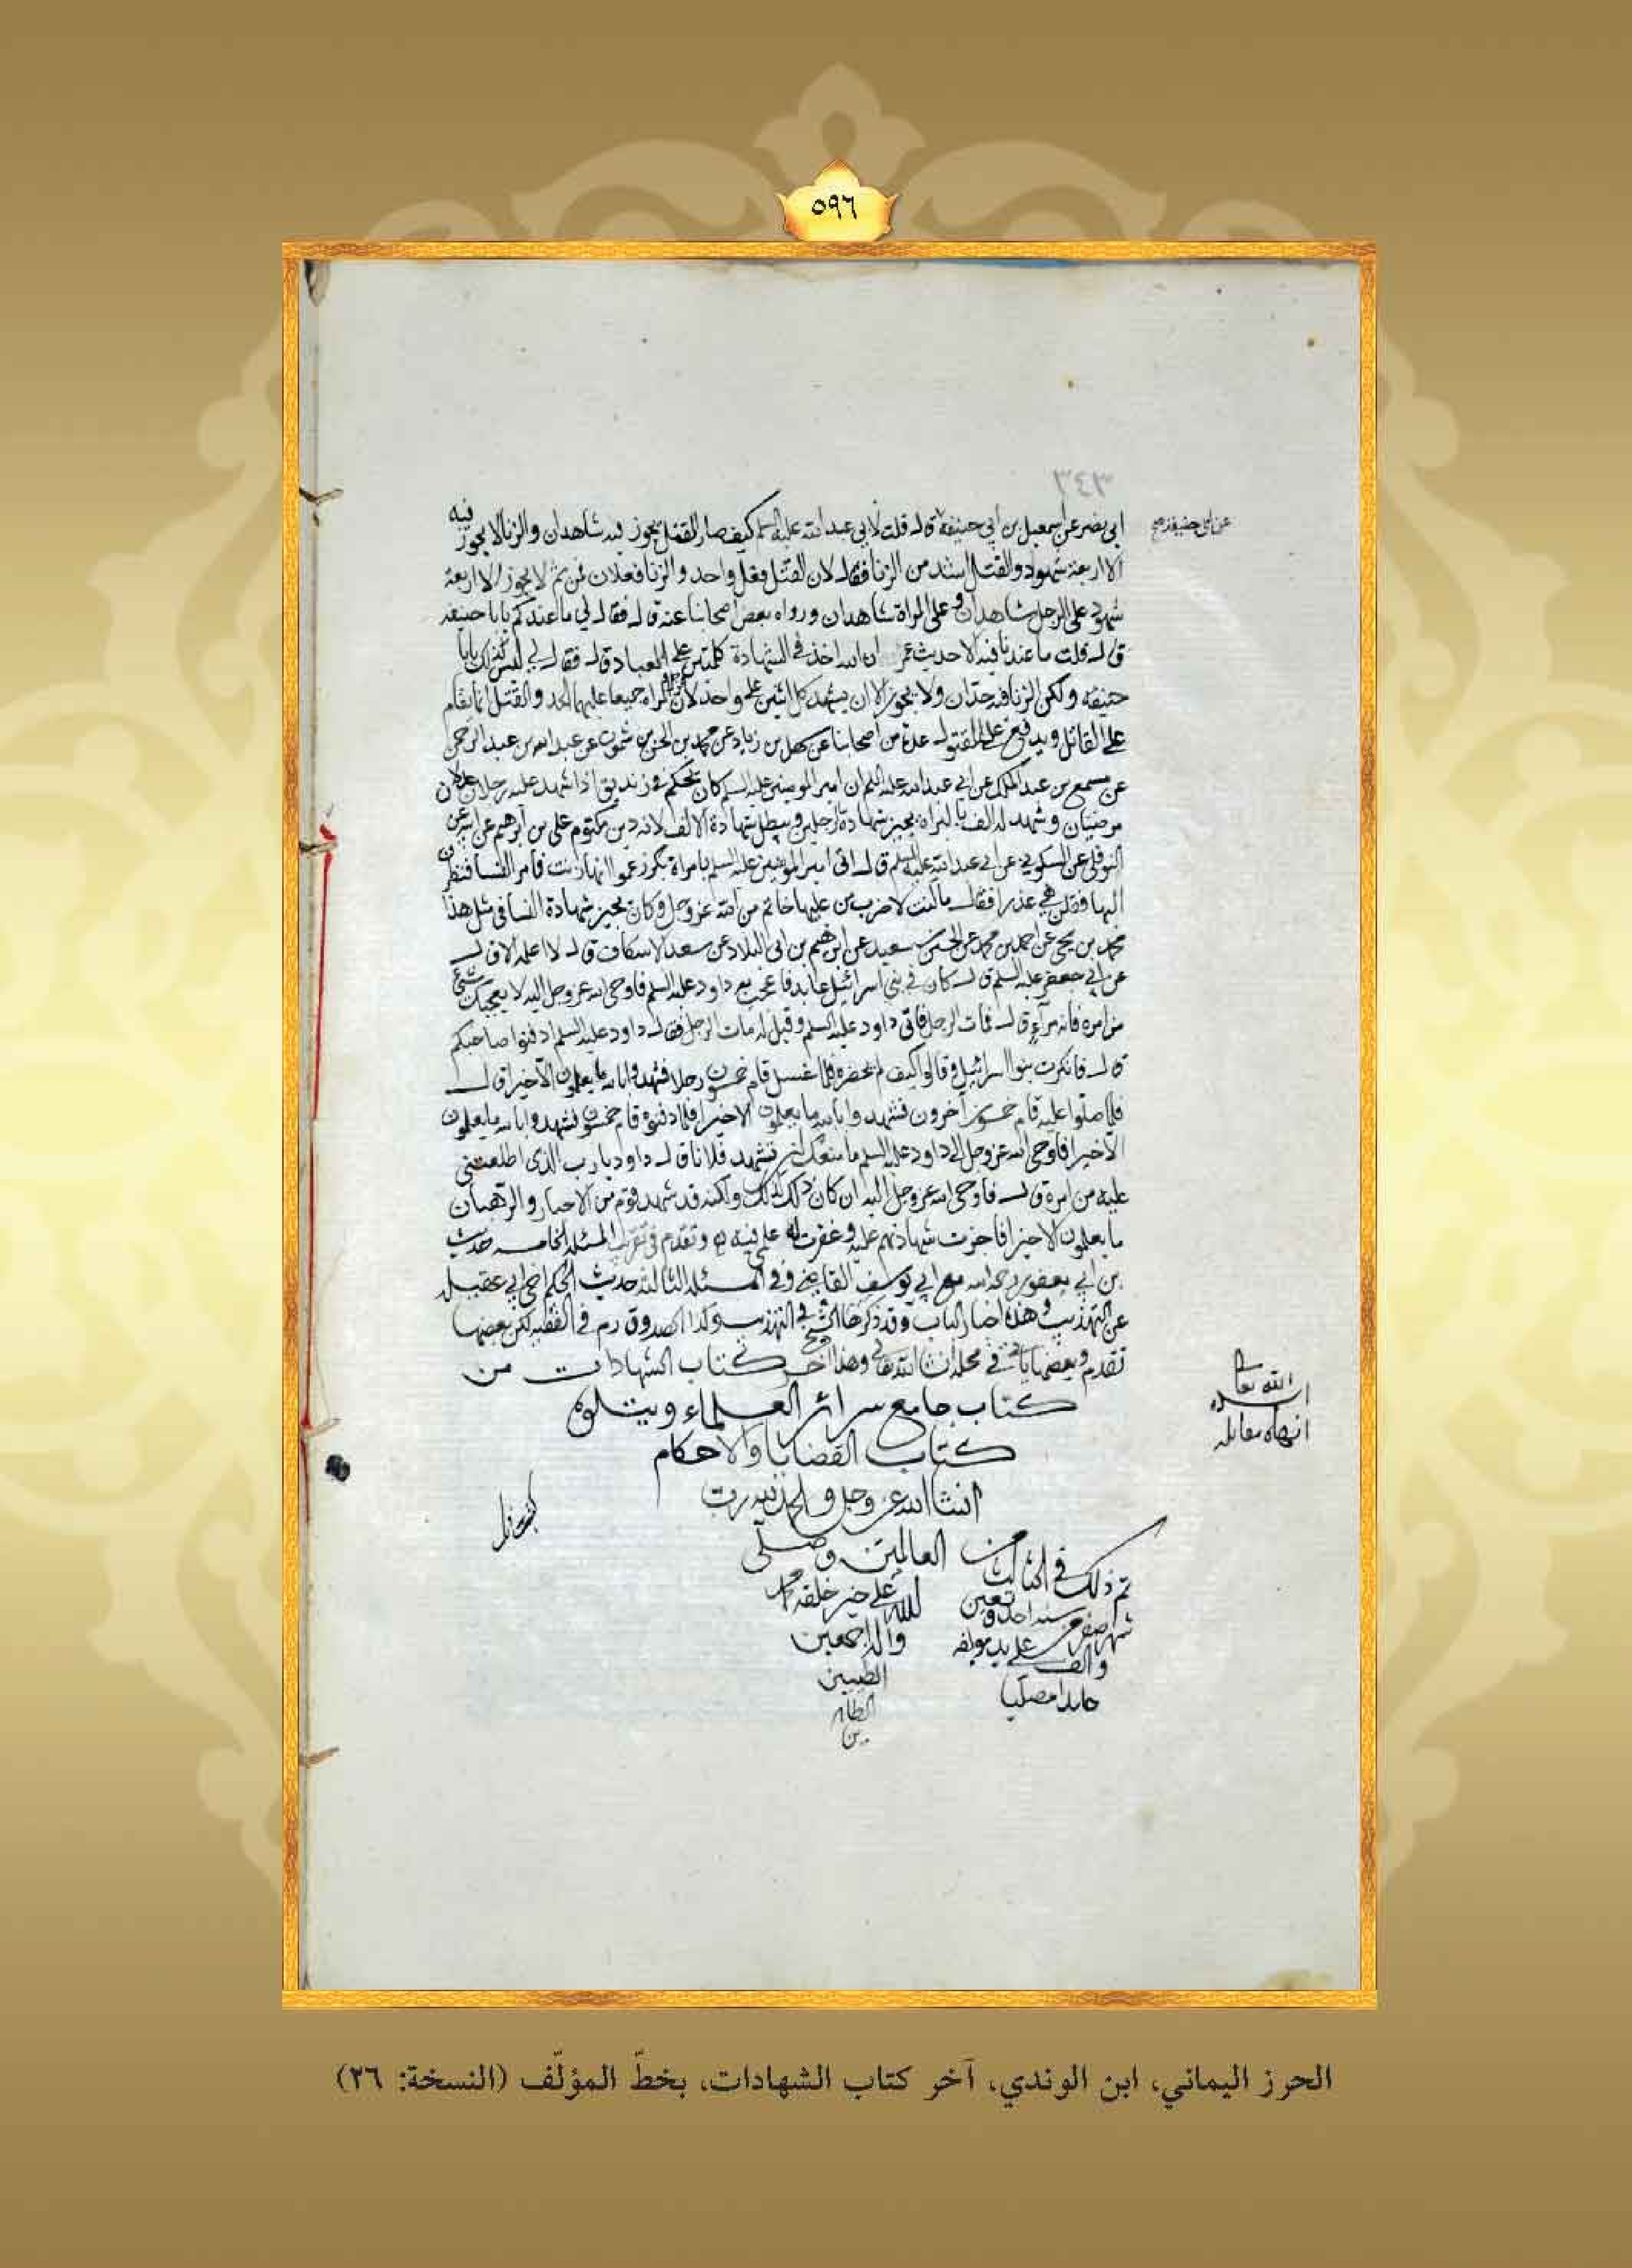 ٥٩٦
٣٤٣
ابي نصر عن اسمعيل بن ابي حنيفة قال قلت لابي عبد الله عليه السلم كيف صار القتل يجوز فيه شاهدان والزنا لا يجوز فيه
الا اربعة شهود والقتل اشد من الزنا فقال لان القتل فعل واحد والزنا فعلان فمن ثم لا يجوز الا اربعة
شهود على الرجل شاهدان وعلى المراة شاهدان ورواه بعض اصحابنا عنه قال فقال لي ما عندكم يابا حنيفه
قال قلت ما عندنا فيه الا حديث عمر ان الله اخذ في الشهادة كلمتين على العباد قال فقال لي ليس كذلك يابا
حنيفه ولكن الزنا فيه حدان ولا يجوز الا ان يشهد كل اثنين على واحد لان الرجل والمراه جميعا عليهما الحد والقتل انما يقام
على القاتل ويدفع عن المقتول عدة من اصحابنا عن سهل بن زياد عن محمد بن الحسن بن شمون عن عبد الله بن عبد الرحمن
عن مسمع بن عبد الملك عن ابي عبد الله عليه السلم ان امير المومنين عليه السلم كان يحكم في زنديق اذا شهد عليه رجلان عدلان
مرضيان وشهد له الف بالبراه يجيز شهادة الرجلين ويبطل شهادة الالف لانه دين مكتوم علي بن ابرهيم عن ابيه عن
النوفلي عن السكوني عن ابي عبد الله عليه السلم قال اتي امير المومنين عليه السلم بامراة بكر زعموا انها زنت فامر النسا فنظرن
اليها فقلن هي عذرا فقال ما كنت لاضرب من عليها خاتم من الله عز وجل وكان يجيز شهادة النسا في مثل هذا
محمد بن يحيى عن احمد بن محمد عن الحسين بن سعيد عن ابرهيم بن ابي البلاد عن سعد الاسكاف قال لا اعلمه الا قال
عن ابي جعفر عليه السلم قال كان في بني اسرائيل عابد فاعجب به داود عليه السلم فاوحى الله عز وجل اليه لا يعجبك شيء
من امره فانه مرآء قال فمات الرجل فاتي داود عليه السلم وقيل له مات الرجل فقال داود عليه السلم ادفنوا صاحبكم
قال فانكرت بنوا اسرائيل وقالوا كيف لم يحضره فلما غسل قام خمسون رجلا فشهدوا بالله ما يعلمون الا خيرا قال
فلما صلوا عليه قام خمسون آخرون فشهدوا بالله ما يعلمون الا خيرا فلما دفنوه قام خمسون فشهدوا بالله ما يعلمون
الا خيرا فاوحى الله عز وجل الى داود عليه السلم ما منعك ان تشهد فلانا قال داود يا رب الذي اطلعتني
عليه من امره قال فاوحى الله عز وجل اليه ان كان ذلك كذلك ولكنه قد شهد قوم من الاحبار والرهبان
ما يعلمون الا خيرا فاجزت شهادتهم عليه وغفرت له علمي فيه وتقدم في المسئله الخامسه حديث
بن ابي يعفور رحمه الله مع ابي يوسف القاضي وفي المسئله الثالثه حديث الحكم اخي ابي عقيله
عن التهذيب وهذه اخبار الباب وقد ذكرها الشيخ في التهذيب وكذا الصدوق رم في الفقيه لكن بعضها
تقدم وبعضها ياتي في محله ان شا الله تعالى وهذا آخر كتاب الشهادات من
كتاب جامع سرائر العلماء ويتلوه
كتاب القضايا والاحكام
انشا الله عز وجل والحمد لله رب
العالمين وصلى
الله على خير خلقه محمد
واله اجمعين
الطيبين
الطاهر
ين
تم ذلك في الثالث من
شهر صفر سنه احد وتعين
والف على يد مولفه
حامدا مصليا
عن ابي حنيفة صح
انهاه مقابله
ايده
الله تعا
الحرز اليماني، ابن الوندي، آخر كتاب الشهادات، بخطّ المؤلّف (النسخة: ٣٦)